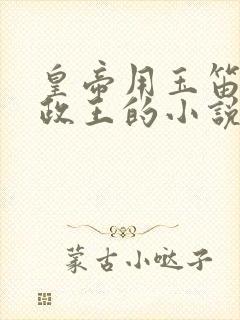 皇帝用玉笛
政王的小說
蒙古小噠子